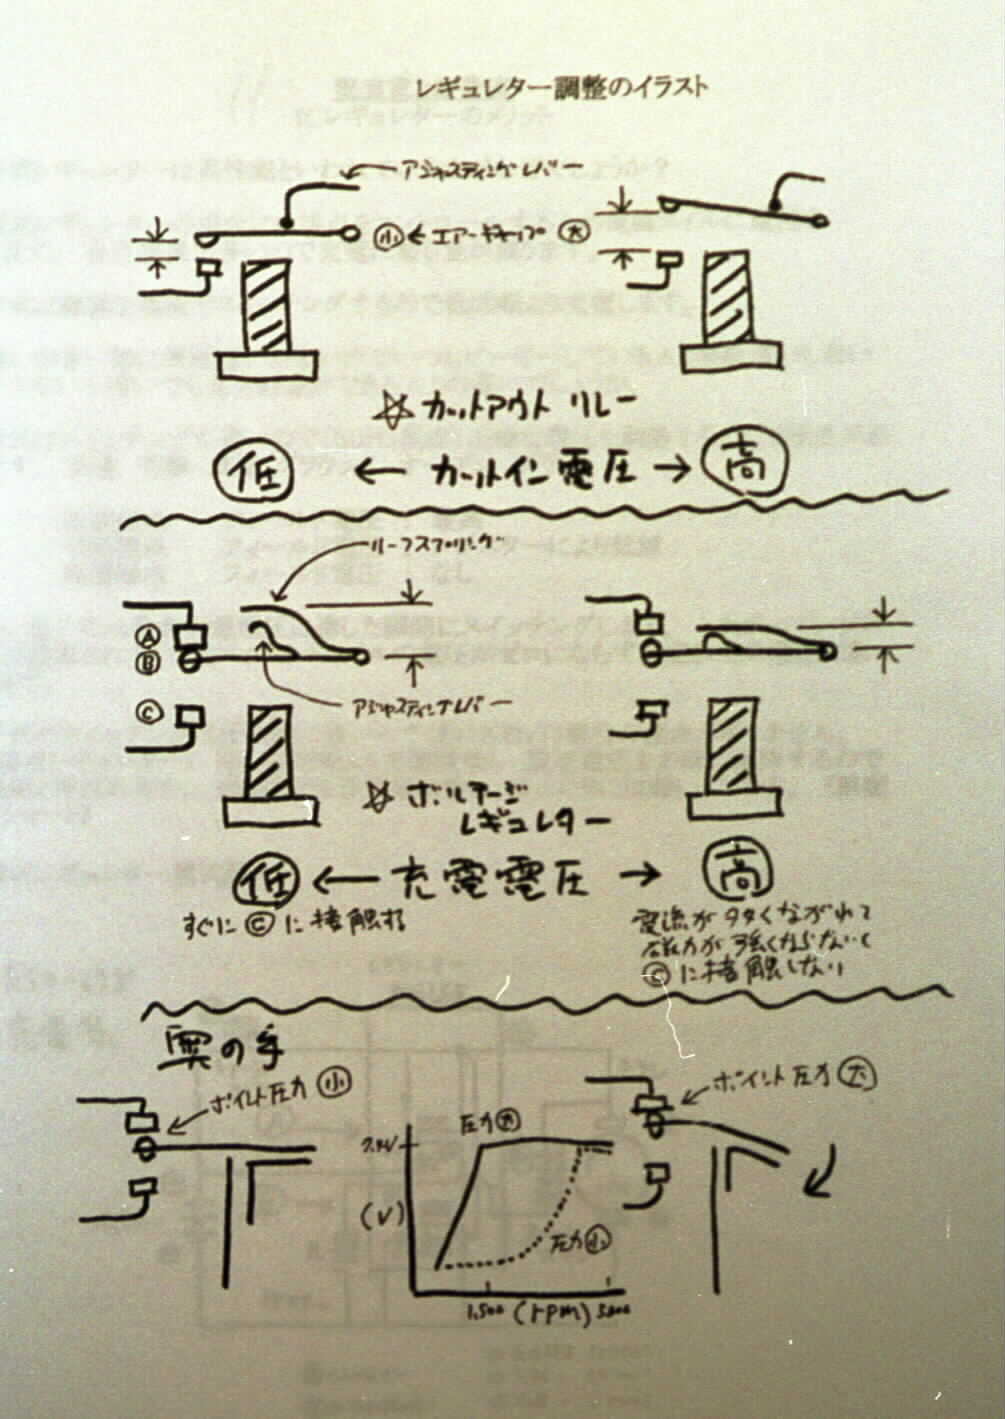 レギュレター調整のイラスト
アジャスティングレバー
小 ← エアーギャップ 大
☆ カットアウト リレー
低 ← カットイン電圧 → 高
リーフスプリング
A
B
C
アジャスティングレバー
☆ ボルテージ
レギュレター
低 ← 充電電圧 → 高
すぐに C に接触する
電流が多くながれて
磁力が強くならないと
C に接触しない
奥の手
ポイント圧力 小
ポイント圧力 大
圧力 大
(V)
圧力 小
1,500 (rpm)